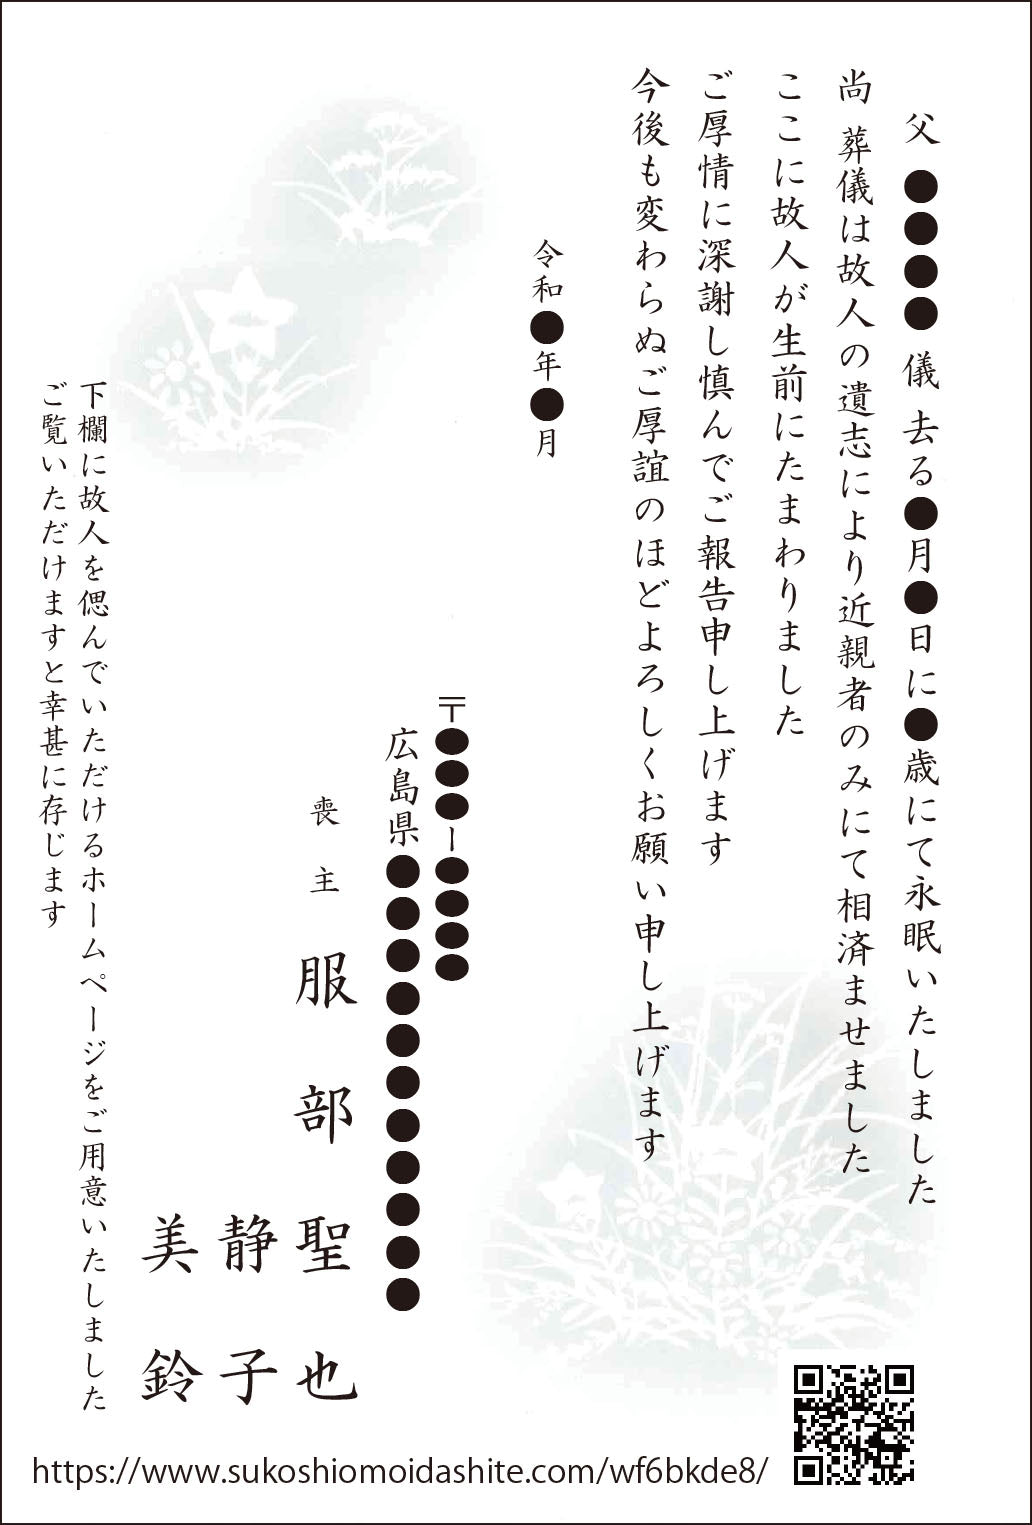 父 ●●●● 儀 去る●月●日に●歳にて永眠いたしました
尚 葬儀は故人の遺志により近親者のみにて相済ませました
ここに故人が生前にたまわりました
ご厚情に深謝し慎んでご報告申し上げます
今後も変わらぬご厚誼のほどよろしくお願い申し上げます
令和●年●月
〒●●●ー●●●●
広島県●●●●●●●●●●●
喪主 服部 聖也
静子
美鈴
下欄に故人を偲んでいただけるホームページをご用意いたしました
ご覧いただけますと幸甚に存じます
https://www.sukoshiomoidashite.com/wf6bkde8/